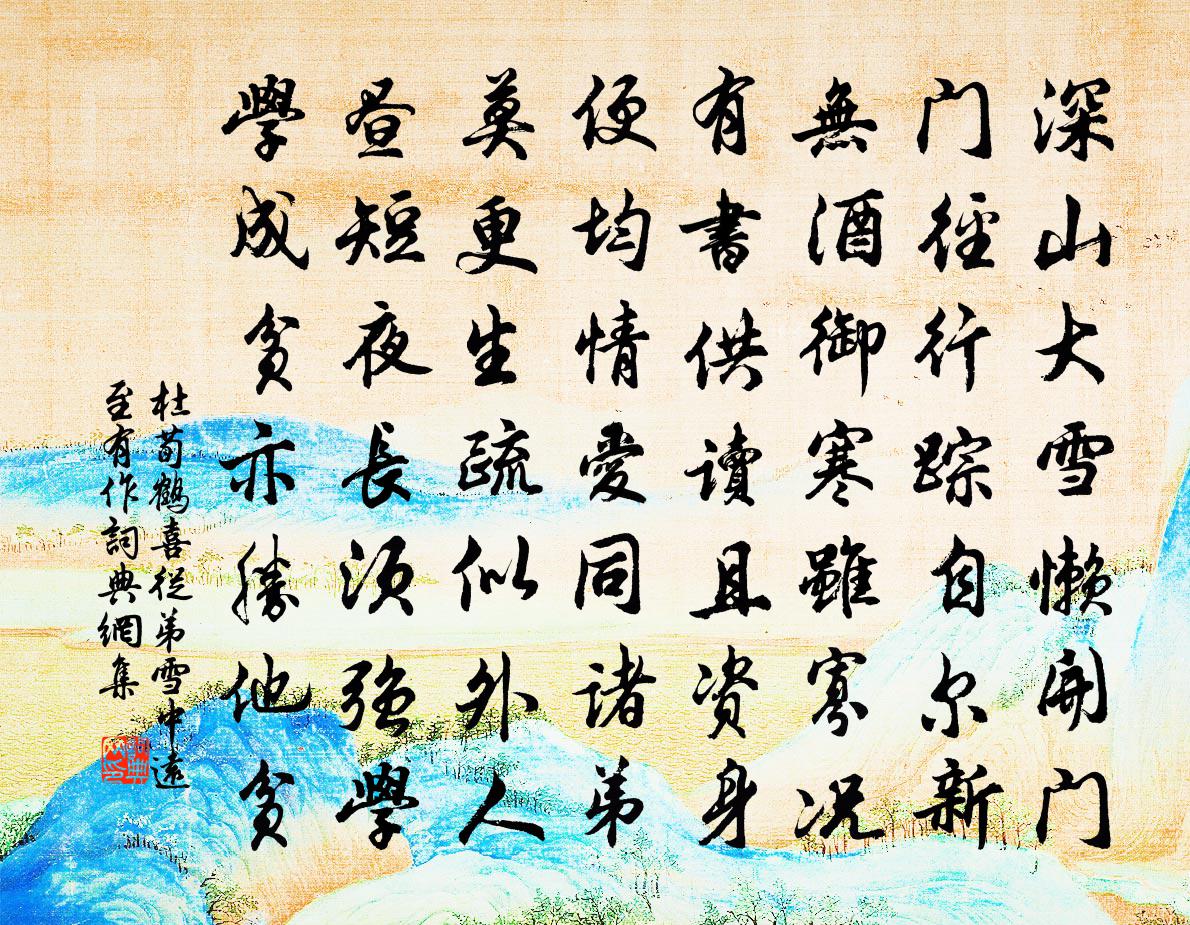 深山大雪懒開门
门徑行踪自尔新
無酒御寒雖寡況
有書供讀且资身
便均情愛同诸弟
莫更生疏似外人
昼短夜長须强學
學成贫亦勝他贫
杜荀鶴喜從弟雪中遠
至有作詞典網集